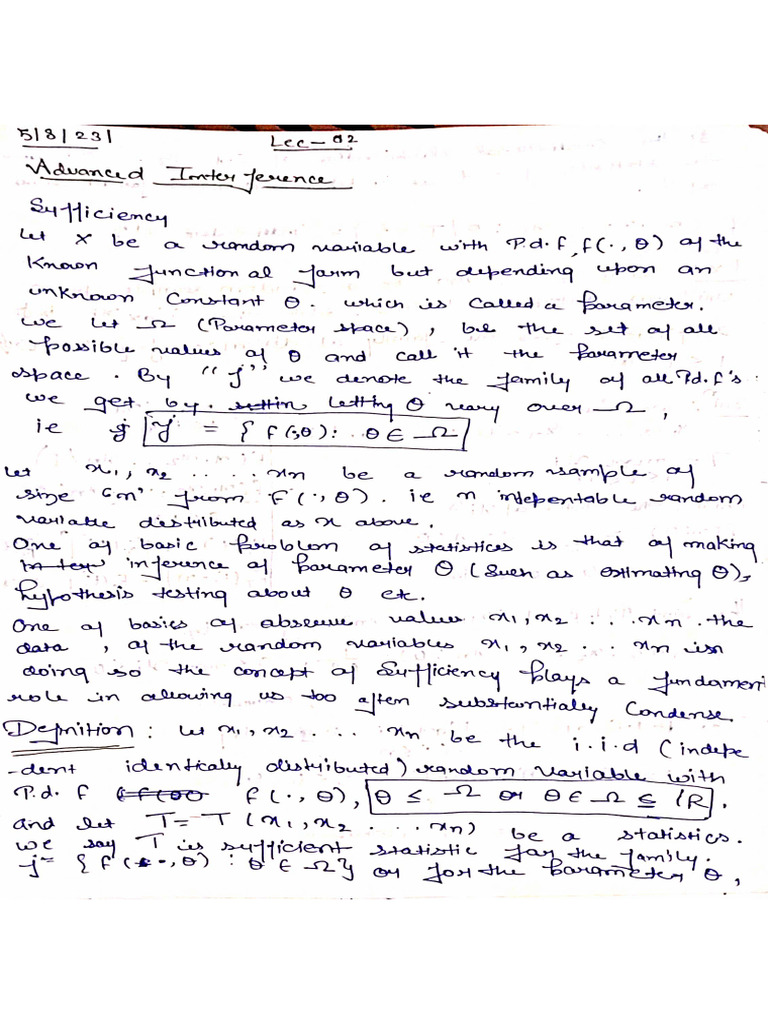 5/8/23/
Lec-02
Advanced Interference
Sufficiency
Let X be a random variable with P.d.f, f(·, θ) of the
Known functional form but depending upon an
unknown constant θ. which is called a parameter.
we let Ω (Parameter space), be the set of all
possible values of θ and call it the parameter
space. By "f" we denote the family of all P.d.f's
we get by letting θ vary over Ω,
ie f = { f(·,θ): θ ∈ Ω
Let x1, x2 ..... xn be a random sample of
size 'n' from f(·, θ). ie n indepentable random
variable distributed as x above.
One of basic problem of statistics is that of making
inference of parameter θ (such as estimating θ),
hypothesis testing about θ etc.
One of basics of observe values x1, x2 ... xn the
data, of the random variables x1, x2 .. xn in
doing so the concept of sufficiency plays a fundamen
role in allowing us too often substantially condense.
Definition: Let x1, x2 .... xn be the i.i.d (indepe
-dent identically distributed) random variable with
P.d.f f(·, θ), θ ≤ Ω or θ ∈ Ω ⊆ IR.
and let T = T (x1, x2 .... xn) be a statistics.
we say T is sufficient statistic for the family.
f = { f (·, θ) : θ ∈ Ω } or for the parameter θ,